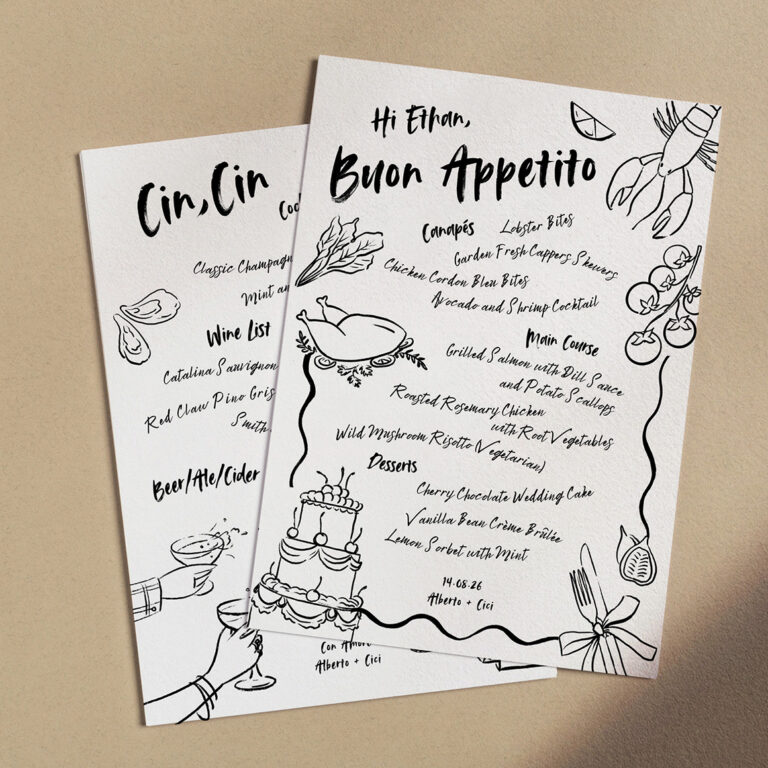 Hi Ethan,
Buon Appetito
Canapés
Lobster Bites
Garden Fresh Cappers Skewers
Chicken Cordon Bleu Bites
Avocado and Shrimp Cocktail
Main Course
Grilled Salmon with Dill Sauce
and Potato Scallops
Roasted Rosemary Chicken
with Root Vegetables
Wild Mushroom Risotto (Vegetarian)
Desserts
Cherry Chocolate Wedding Cake
Vanilla Bean Crème Brûlée
Lemon Sorbet with Mint
14.08.26
Alberto + Cici
Cin, Cin
Classic Champagn
Mint an
Wine List
Catalina Sauvignon
Red Claw Pino Gris
Smith
Beer/Ale/Cider
Con Amor
Alberto + Cici